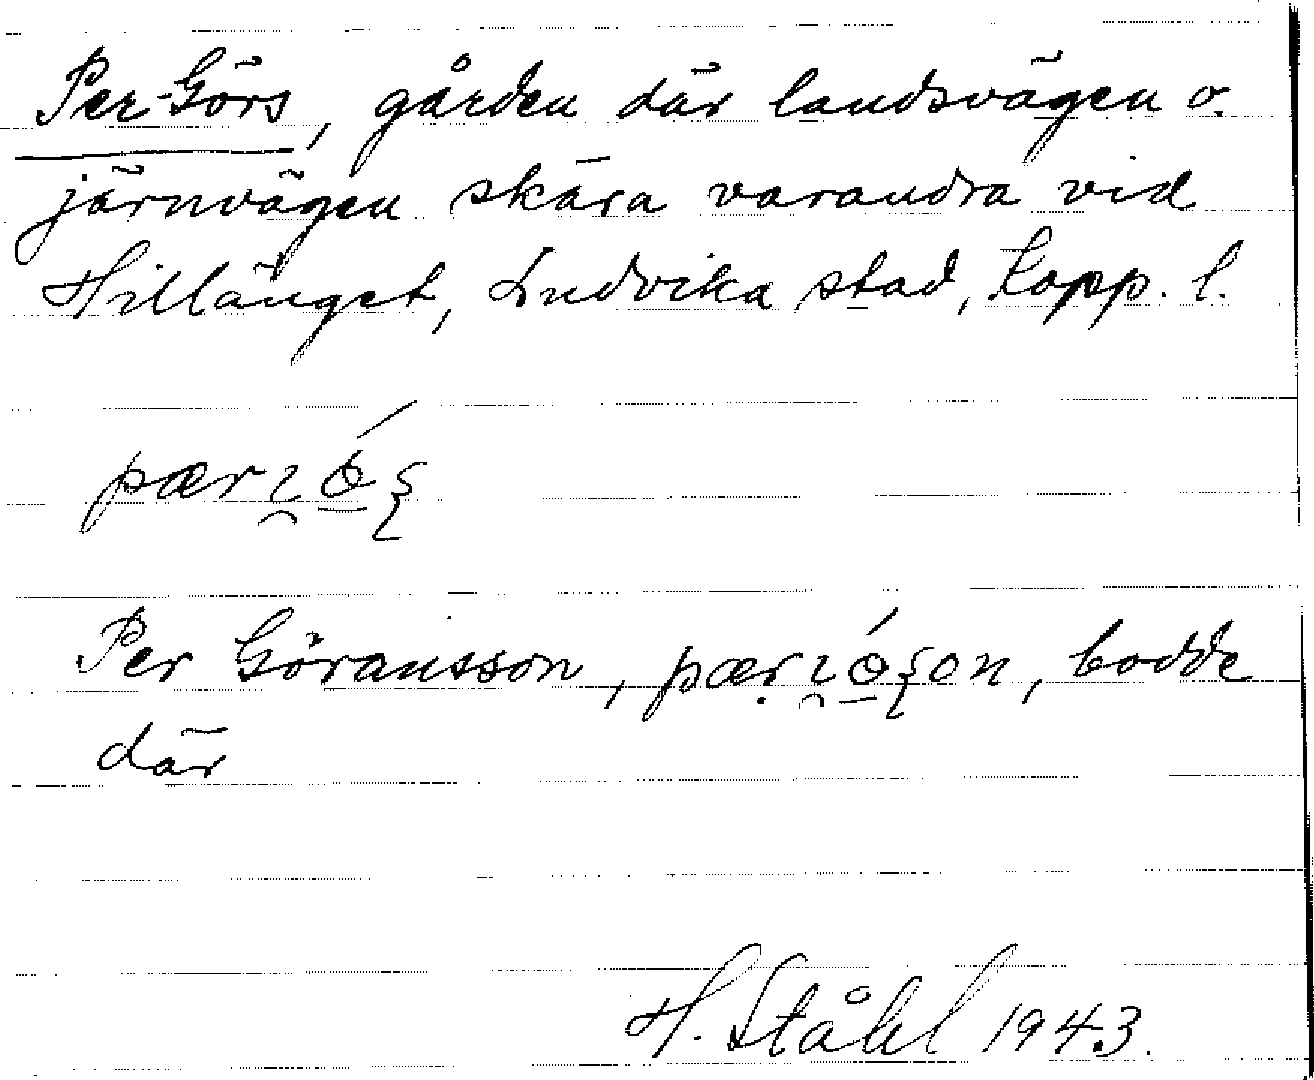 Per-Görs, gården där landsvägen o.
järnvägen skära varandra vid
Hillänget, Ludvika stad, Kopp. l.
Per Göransson, bodde
där
H. Ståhl 1943.